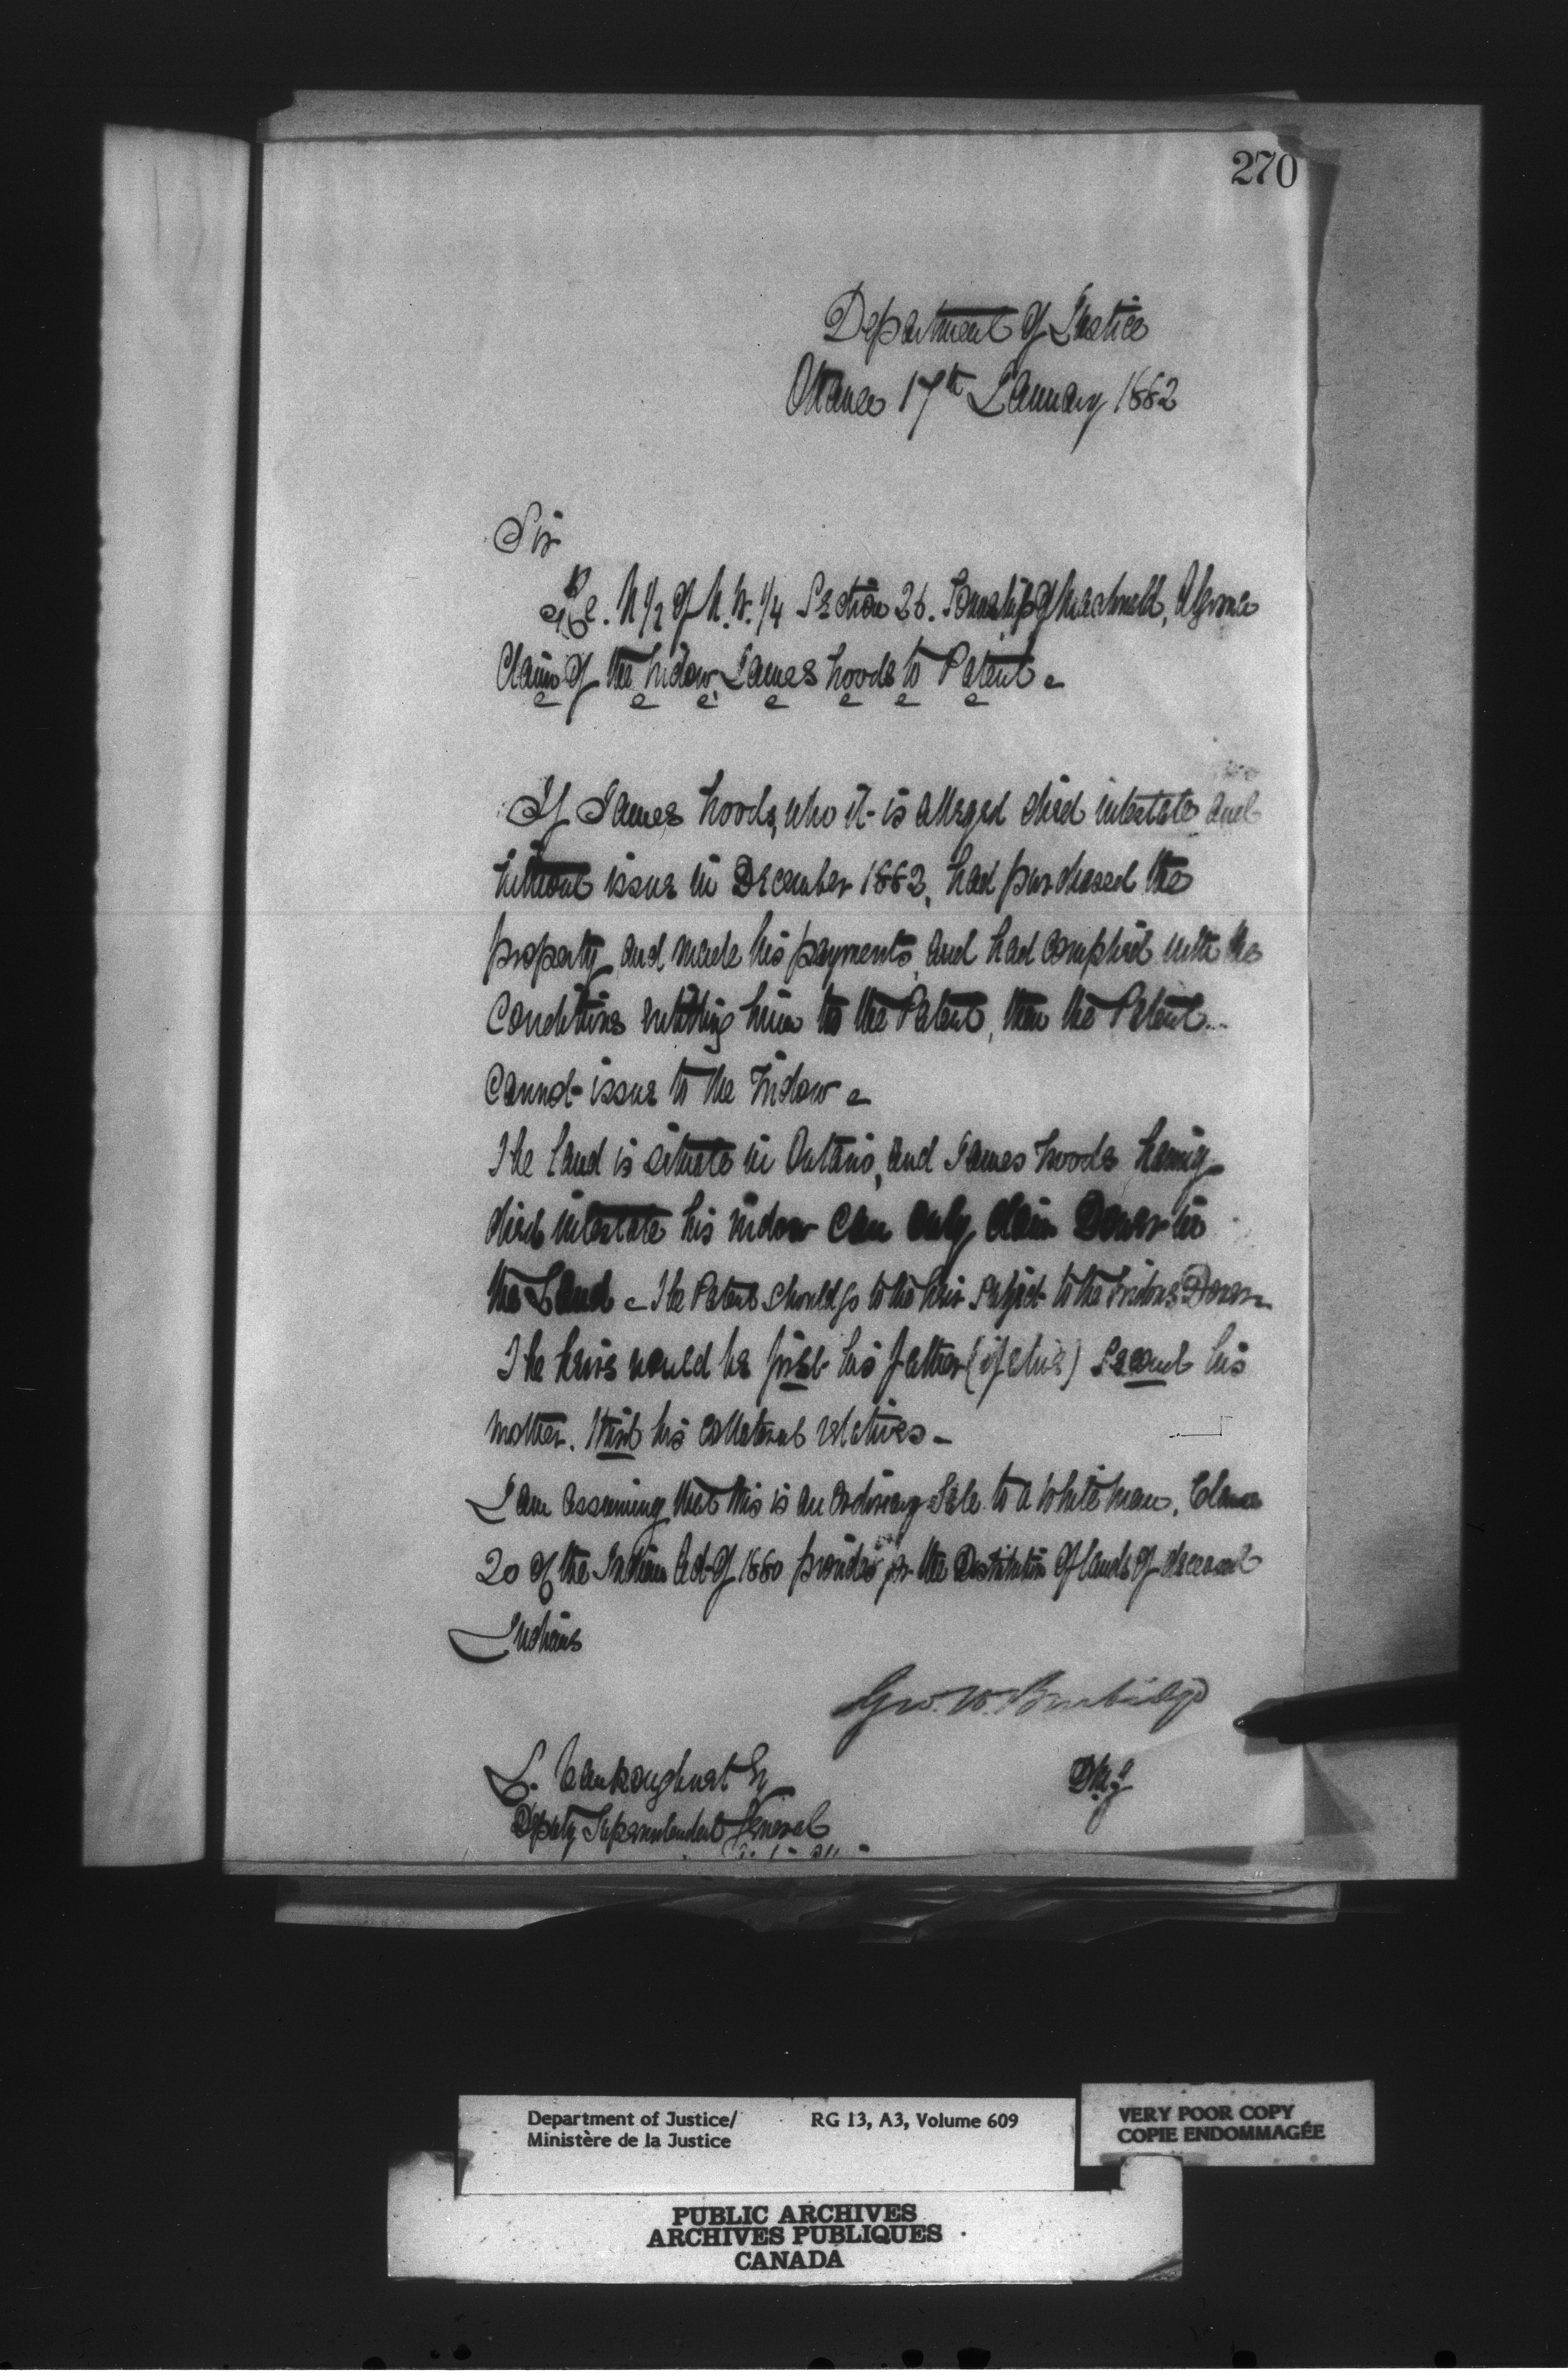 270
Department of Justice
Ottawa 17th January 1882
Sir
Re. N 1/2 of N.W. 1/4 Section 26. Township of Macdonald, Algoma
Claim of the Widow James Woods to Patent
If James Woods, who it is alleged died intestate and
without issue in December 1882, had purchased the
property and made his payments, and had complied with the
conditions entitling him to the Patent, then the Patent
cannot issue to the Widow
The land is situate in Ontario, and James Woods having
died intestate his widow can only claim Dower in
the Land The Patent should go to the heir subject to the Widows Dower
The heirs would be first his father (if alive) second his
mother. Third his collateral relatives
I am assuming that this is an ordinary Sale to a White man. Clause
20 of the Indian Act of 1880 provides for the Distribution of lands of deceased
Indians
Geo. W. Burbidge
L. Vankoughnet Esq
D.M.J
Deputy Superintendent General
Department of Justice/ RG 13, A3, Volume 609
Ministère de la Justice
VERY POOR COPY
COPIE ENDOMMAGÉE
PUBLIC ARCHIVES
ARCHIVES PUBLIQUES
CANADA